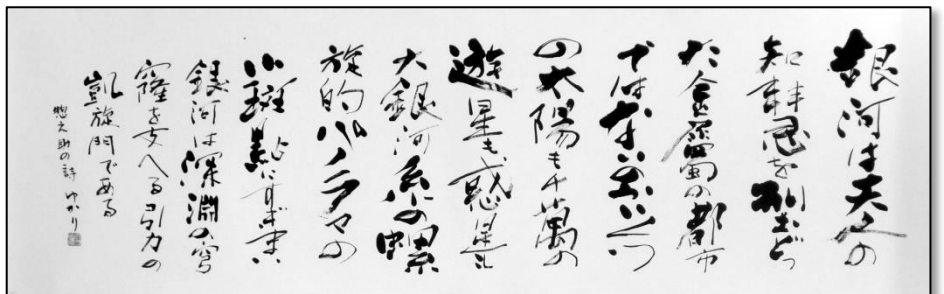 銀河は夫々の
知
た の都市
ではない いくつ
の太陽も千萬の
遊星も惑星も
大銀河系の螺
旋的パノラマの
小斑點にすぎない
銀河は深淵の穹
窿を支へる引力の
凱旋門である
惣之助の詩 ゆかり